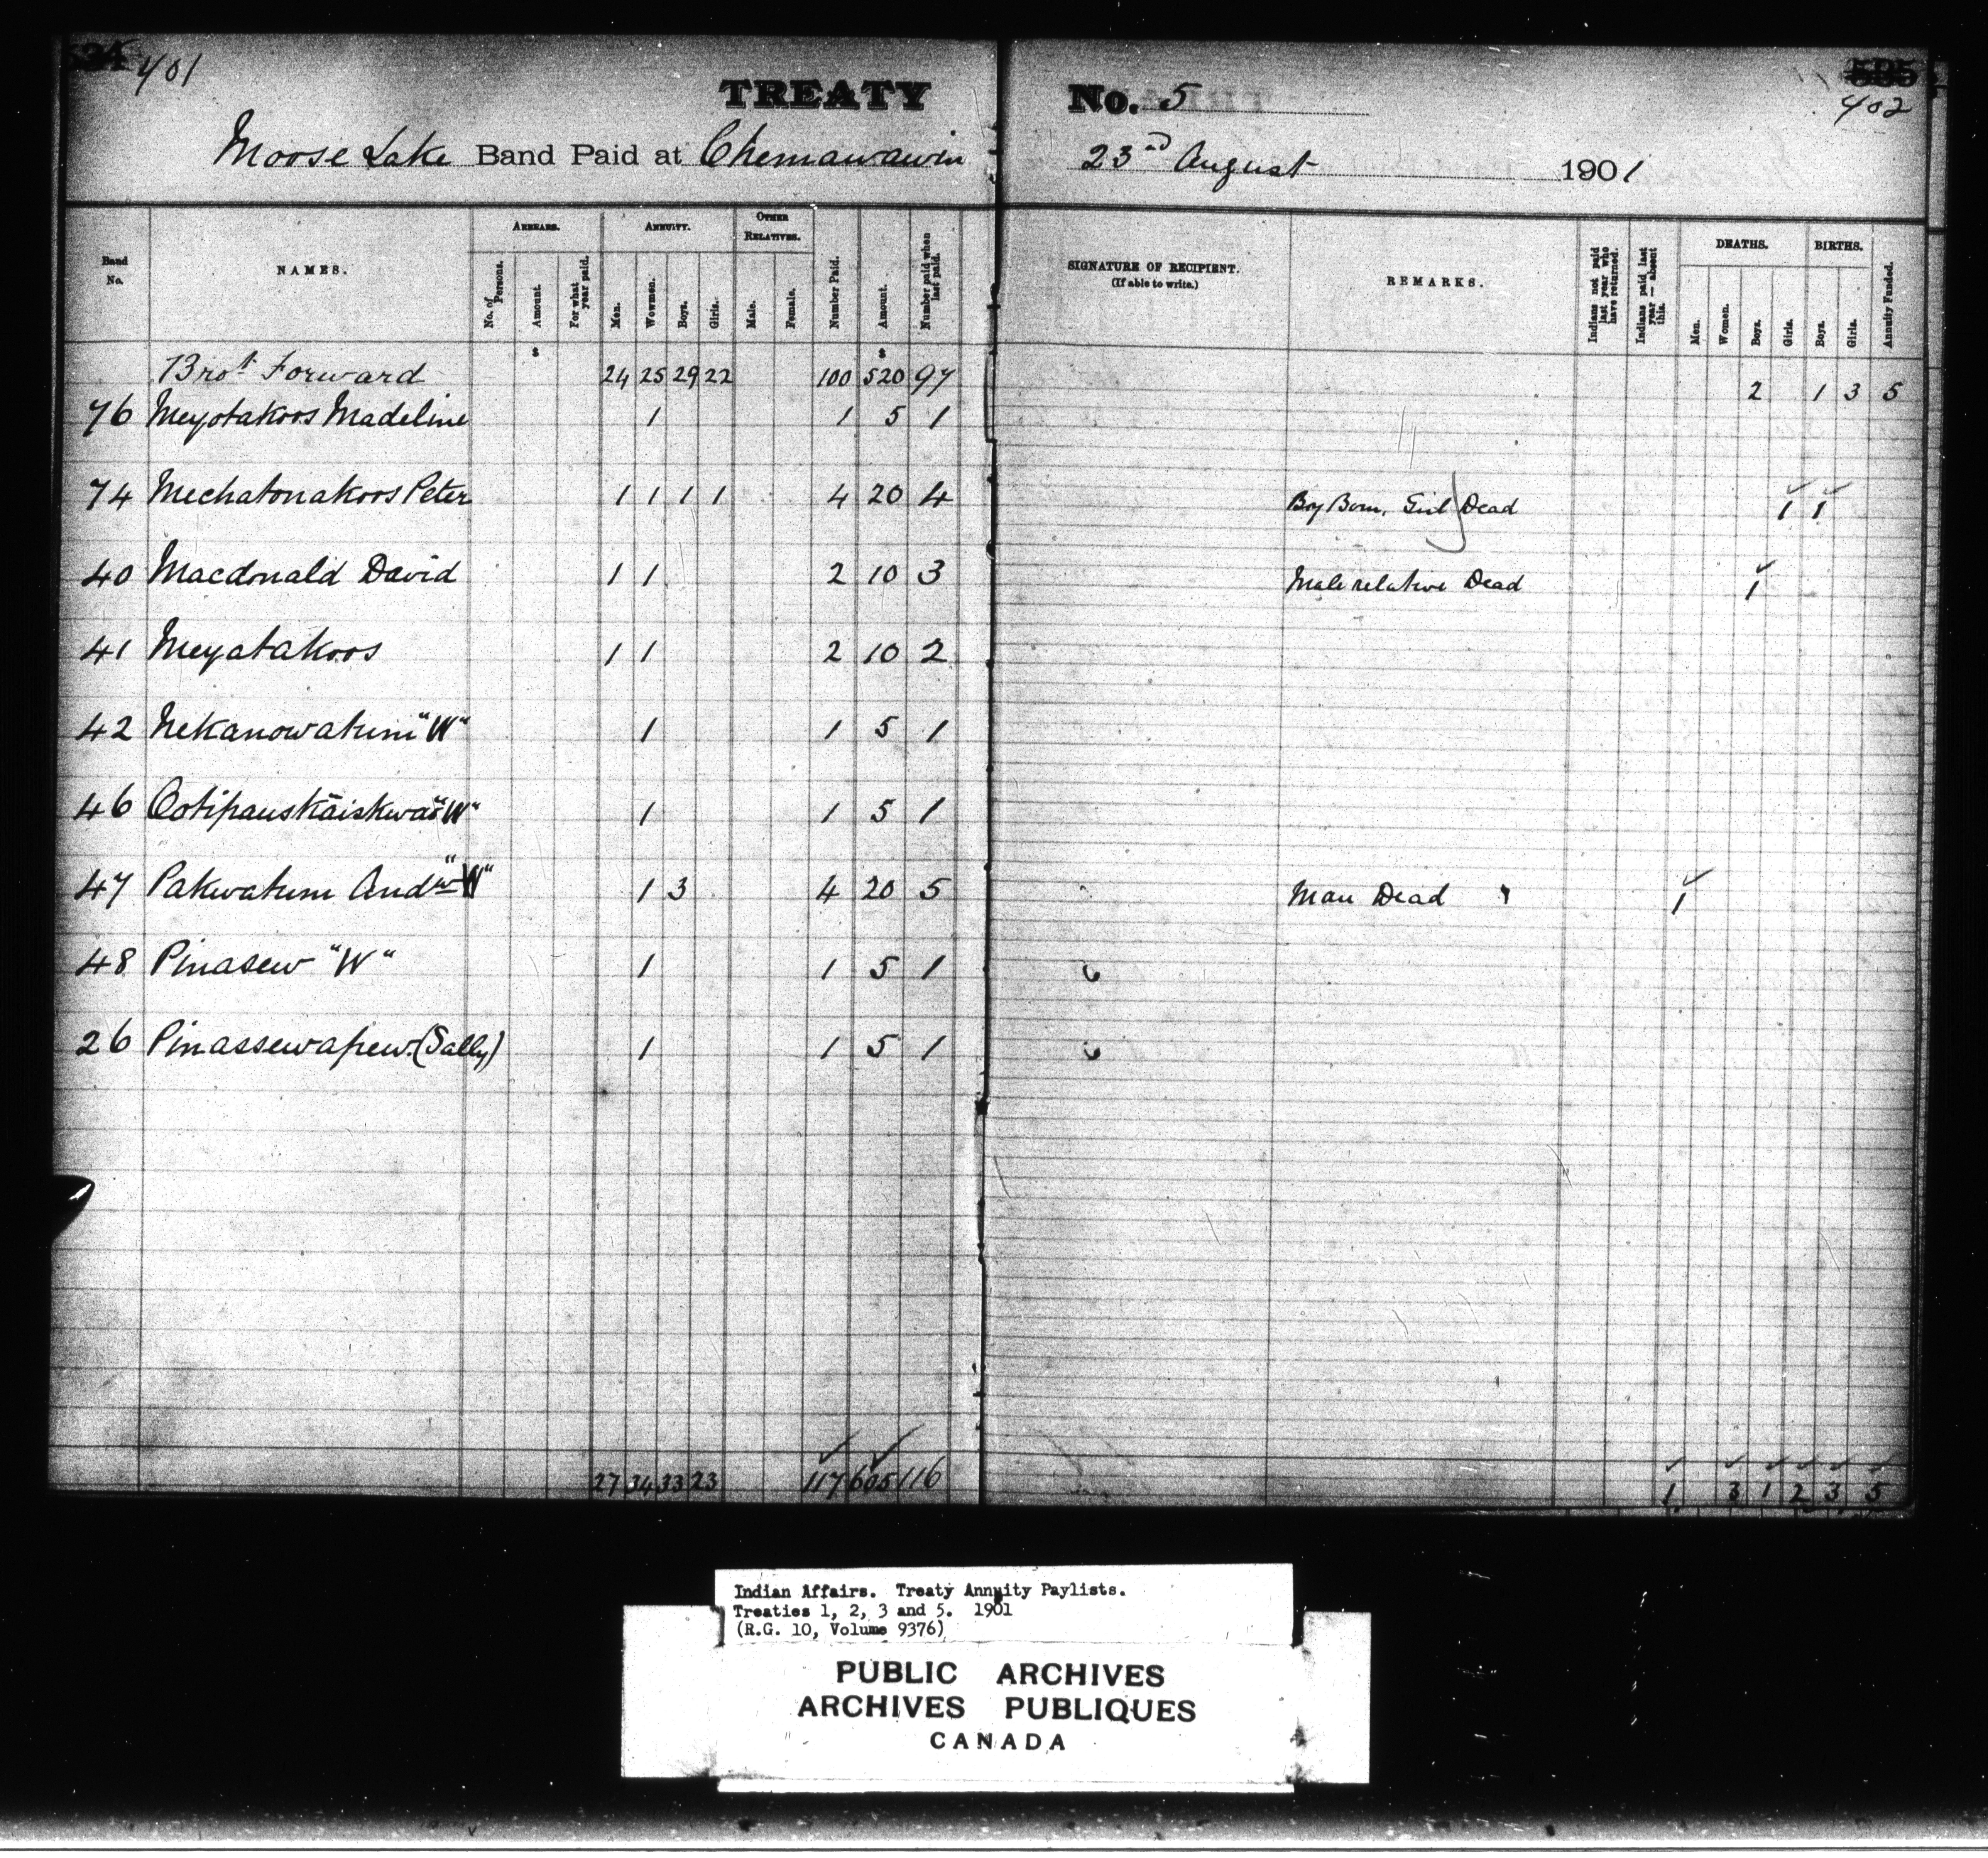 401
402
TREATY No. 5
Moose Lake Band Paid at Chemawawin 23rd August 1901
Band No. NAMES. ARREARS. ANNUITY. OTHER RELATIVES. Number Paid. Amount. Number paid when last paid. SIGNATURE OF RECIPIENT. (If able to write.) REMARKS. Indians not paid last year who have returned. Indians paid last year — absent this. DEATHS. BIRTHS. Annuity Funded.
No. of Persons. Amount. For what year paid. Men. Wowmen. Boys. Girls. Male. Female. Men. Women. Boys. Girls. Boys. Girls.
$ $
Brot Forward 24 25 29 22 100 520 97 2 1 3 5
76 Meyotakoos Madeline 1 1 5 1
74 Mechatonakoos Peter 1 1 1 1 4 20 4 Boy Born, Girl Dead 1 1
40 Macdonald David 1 1 2 10 3 Male relative Dead 1
41 Meyatakoos 1 1 2 10 2
42 Nekanowatum "W" 1 1 5 1
46 Ootipauskaiskwao "W" 1 1 5 1
47 Pakwatum Andw "W" 1 3 4 20 5 Man Dead 1
48 Pinasew "W" 1 1 5 1
26 Pinassewapew (Sally) 1 1 5 1
27 34 33 23 117 605 116 1 3 1 2 3 5
Indian Affairs. Treaty Annuity Paylists.
Treaties 1, 2, 3 and 5. 1901
(R.G. 10, Volume 9376)
PUBLIC ARCHIVES
ARCHIVES PUBLIQUES
CANADA